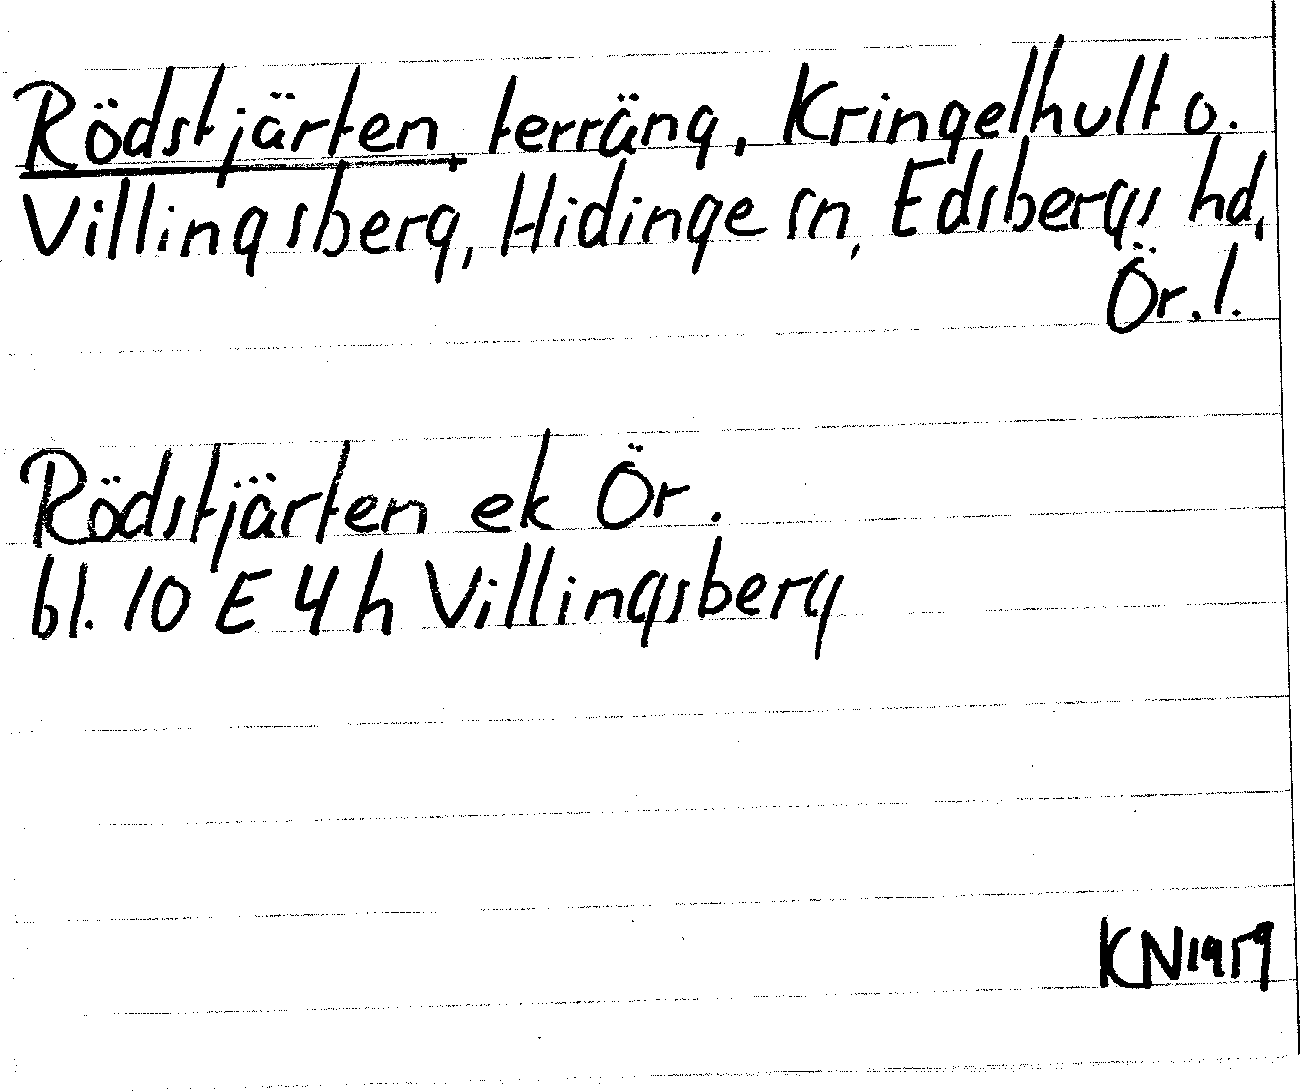 Rödstjärten, terräng, Kringelhult o.
Villingsberg, Hidinge sn, Edsbergs hd,
Ör. l.
Rödstjärten ek Ör.
bl. 10 E 4 h Villingsberg